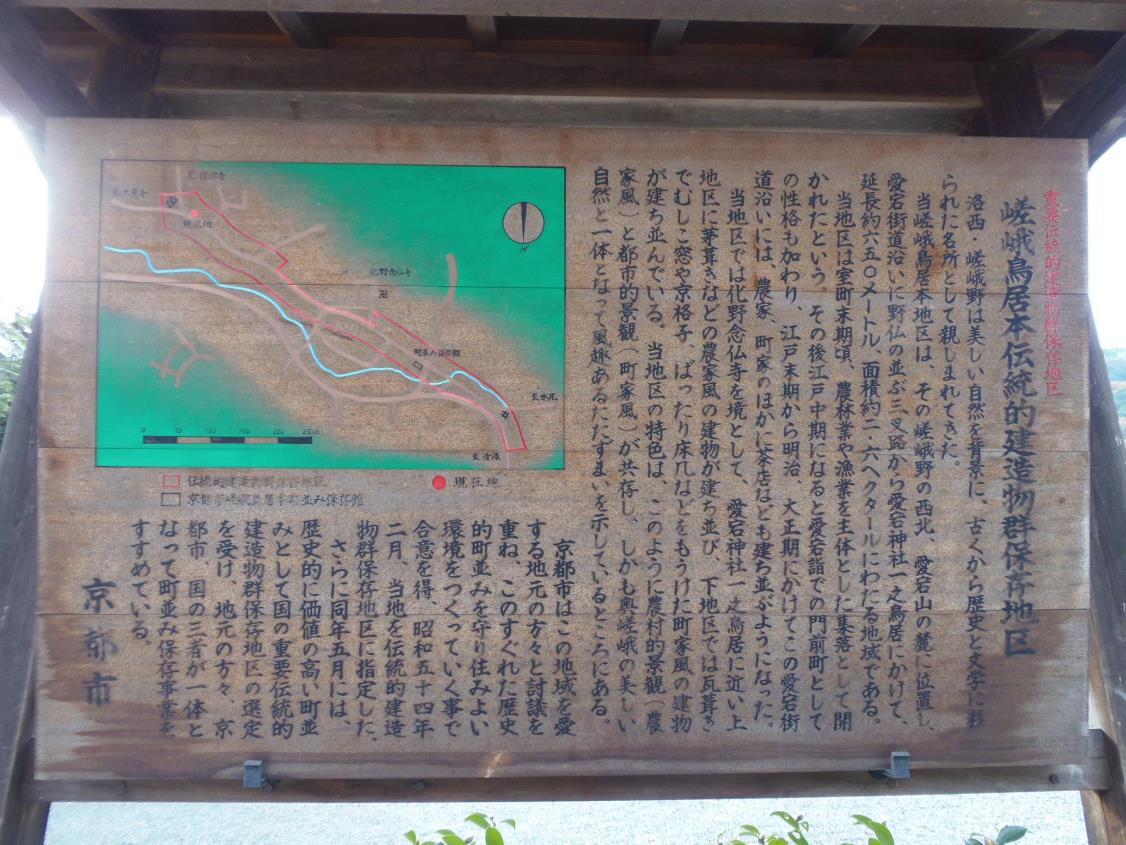 重要伝統的建造物群保存地区
嵯峨鳥居本伝統的建造物群保存地区
洛西・嵯峨野は美しい自然を背景に、古くから歴史と文学に彩
られた名所として親しまれてきた。
当嵯峨鳥居本地区は、その嵯峨野の西北、愛宕山の麓に位置し、
愛宕街道沿いに野仏の並ぶ三叉路から愛宕神社一之鳥居にかけて、
延長約六五〇メートル、面積約二・六ヘクタールにわたる地域である。
当地区は室町末期頃、農林業や漁業を主体とした集落として開
かれたという。その後江戸中期になると愛宕詣での門前町として
の性格も加わり、江戸末期から明治、大正期にかけてこの愛宕街
道沿いには、農家、町家のほかに茶店なども建ち並ぶようになった。
当地区では化野念仏寺を境として、愛宕神社一之鳥居に近い上
地区に茅葺きなどの農家風の建物が建ち並び、下地区では瓦葺き
でむしこ窓や京格子、ばったり床几などをもうけた町家風の建物
が建ち並んでいる。当地区の特色は、このように農村的景観（農
家風）と都市的景観（町家風）が共存し、しかも奥嵯峨の美しい
自然と一体となって風趣あるたたずまいを示しているところにある。
京都市はこの地域を愛
する地元の方々と討議を
重ね、このすぐれた歴史
的町並みを守り住みよい
環境をつくっていく事で
合意を得、昭和五十四年
二月、当地を伝統的建造
物群保存地区に指定した。
さらに同年五月には、
歴史的に価値の高い町並
みとして国の重要伝統的
建造物群保存地区の選定
を受け、地元の方々、京
都市、国の三者が一体と
なって町並み保存事業を
すすめている。
京都市
至大覚寺
現在地
化野念仏寺
卍
町並み保存館
至水尾
至清滝
0 50 100 150 200 250m
伝統的建造物群保存地区
現在地
京都市嵯峨鳥居本町並み保存館